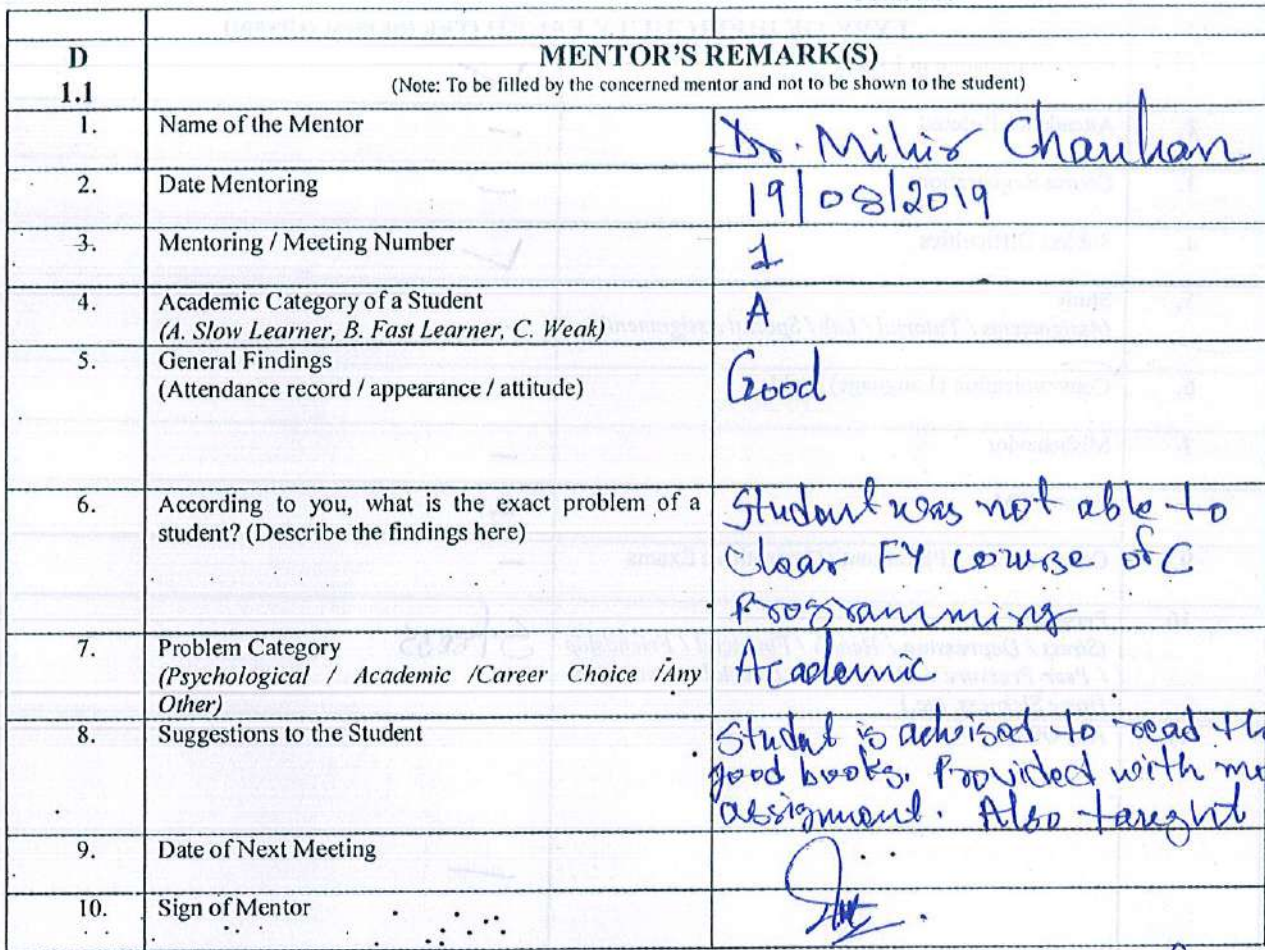 D
1.1
MENTOR'S REMARK(S)
(Note: To be filled by the concerned mentor and not to be shown to the student)
1. Name of the Mentor Dr. Mihir Chauhan
2. Date Mentoring 19/08/2019
3. Mentoring / Meeting Number 1
4. Academic Category of a Student A
(A. Slow Learner, B. Fast Learner, C. Weak)
5. General Findings Good
(Attendance record / appearance / attitude)
6. According to you, what is the exact problem of a Student was not able to
student? (Describe the findings here) Clear FY course of C
Programming
7. Problem Category Academic
(Psychological / Academic /Career Choice /Any
Other)
8. Suggestions to the Student Student is advised to read
good books. Provided with
assignment. Also taught
9. Date of Next Meeting
10. Sign of Mentor